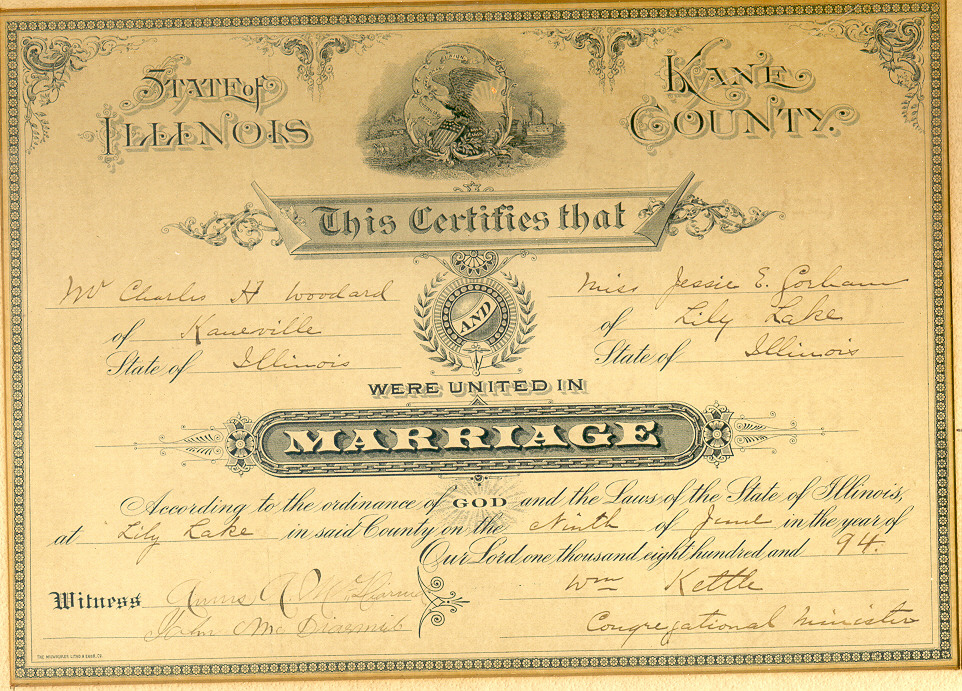 STATE of ILLINOIS
KANE COUNTY.
This Certifies that
Mr Charles H Woodard
AND
Miss Jessie E. Gorham
of Kaneville
of Lily Lake
State of Illinois
State of Illinois
WERE UNITED IN
MARRIAGE
According to the ordinance of GOD and the Laws of the State of Illinois,
at Lily Lake in said County on the Ninth of June in the year of
Our Lord one thousand eight hundred and 94.
Wm Kettle
Witness
John Mc
Congregational Minister
THE MILWAUKEE LITHO & ENGR. CO.